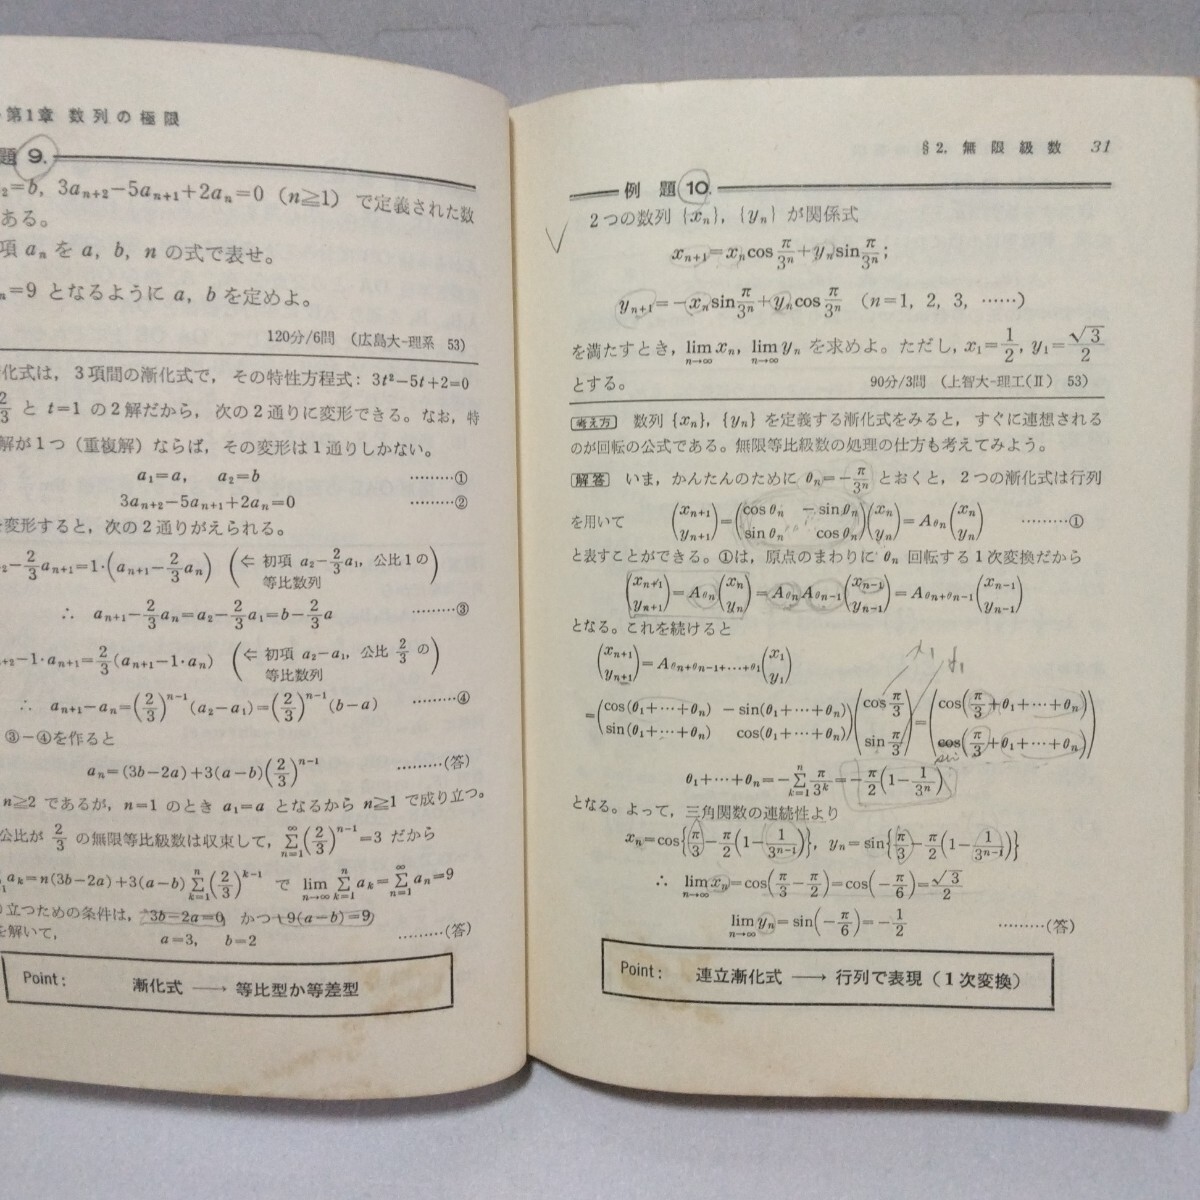 第1章 数列の極限
題 9.
₂=b, 3aₙ₊₂−5aₙ₊₁+2aₙ=0 (n≧1) で定義された数
ある。
項 aₙ を a, b, n の式で表せ。
ₙ=9 となるように a, b を定めよ。
120分/6問 (広島大-理系 53)
化式は, 3項間の漸化式で, その特性方程式: 3t²−5t+2=0
2/3 と t=1 の2解だから, 次の2通りに変形できる。なお, 特
解が1つ(重複解)ならば, その変形は1通りしかない。
a₁=a, a₂=b ………①
3aₙ₊₂−5aₙ₊₁+2aₙ=0 ………②
変形すると, 次の2通りがえられる。
₊₂−2/3 aₙ₊₁=1·(aₙ₊₁−2/3 aₙ) (⇐ 初項 a₂−2/3 a₁, 公比1の等比数列)
∴ aₙ₊₁−2/3 aₙ=a₂−2/3 a₁=b−2/3 a ………③
ₙ₊₂−1·aₙ₊₁=2/3(aₙ₊₁−1·aₙ) (⇐ 初項 a₂−a₁, 公比 2/3 の等比数列)
∴ aₙ₊₁−aₙ=(2/3)ⁿ⁻¹(a₂−a₁)=(2/3)ⁿ⁻¹(b−a) ………④
③−④を作ると
aₙ=(3b−2a)+3(a−b)(2/3)ⁿ⁻¹ ………(答)
n≧2 であるが, n=1 のとき a₁=a となるから n≧1 で成り立つ。
公比が 2/3 の無限等比級数は収束して, ∑_{n=1}^{∞}(2/3)ⁿ⁻¹=3 だから
aₖ=n(3b−2a)+3(a−b)∑_{k=1}^{n}(2/3)ᵏ⁻¹ で lim_{n→∞}∑_{k=1}^{n}aₖ=∑_{n=1}^{∞}aₙ=9
り立つための条件は, 3b−2a=0 かつ +9(a−b)=9
を解いて, a=3, b=2 ………(答)
Point: 漸化式 ⟶ 等比型か等差型
§2. 無限級数 31
例題 10.
2つの数列 {xₙ}, {yₙ} が関係式
xₙ₊₁=xₙcos π/3ⁿ+yₙsin π/3ⁿ;
yₙ₊₁=−xₙsin π/3ⁿ+yₙcos π/3ⁿ (n=1, 2, 3, ……)
を満たすとき, lim_{n→∞} xₙ, lim_{n→∞} yₙ を求めよ。ただし, x₁=1/2, y₁=√3/2
とする。 90分/3問 (上智大-理工(Ⅱ) 53)
考え方 数列 {xₙ}, {yₙ} を定義する漸化式をみると, すぐに連想される
のが回転の公式である。無限等比級数の処理の仕方も考えてみよう。
解答 いま, かんたんのために θₙ=−π/3ⁿ とおくと, 2つの漸化式は行列
を用いて (xₙ₊₁ yₙ₊₁)=(cos θₙ −sin θₙ sin θₙ cos θₙ)(xₙ yₙ)=A_{θₙ}(xₙ yₙ) ………①
と表すことができる。①は, 原点のまわりに θₙ 回転する1次変換だから
(xₙ₊₁ yₙ₊₁)=A_{θₙ}(xₙ yₙ)=A_{θₙ}A_{θₙ₋₁}(xₙ₋₁ yₙ₋₁)=A_{θₙ+θₙ₋₁}(xₙ₋₁ yₙ₋₁)
となる。これを続けると
(xₙ₊₁ yₙ₊₁)=A_{θₙ+θₙ₋₁+…+θ₁}(x₁ y₁) x₁ y₁
=(cos(θ₁+…+θₙ) −sin(θ₁+…+θₙ) sin(θ₁+…+θₙ) cos(θ₁+…+θₙ))(cos π/3 sin π/3)=(cos(π/3+θ₁+…+θₙ) cos(π/3+θ₁+…+θₙ))
sin
θ₁+…+θₙ=−∑_{k=1}^{n} π/3ᵏ=−π/2(1−1/3ⁿ)
となる。よって, 三角関数の連続性より
xₙ=cos{π/3−π/2(1−1/3ⁿ⁻¹)}, yₙ=sin{π/3−π/2(1−1/3ⁿ⁻¹)}
∴ lim_{n→∞} xₙ=cos(π/3−π/2)=cos(−π/6)=√3/2
lim_{n→∞} yₙ=sin(−π/6)=−1/2 ………(答)
Point: 連立漸化式 ⟶ 行列で表現(1次変換)